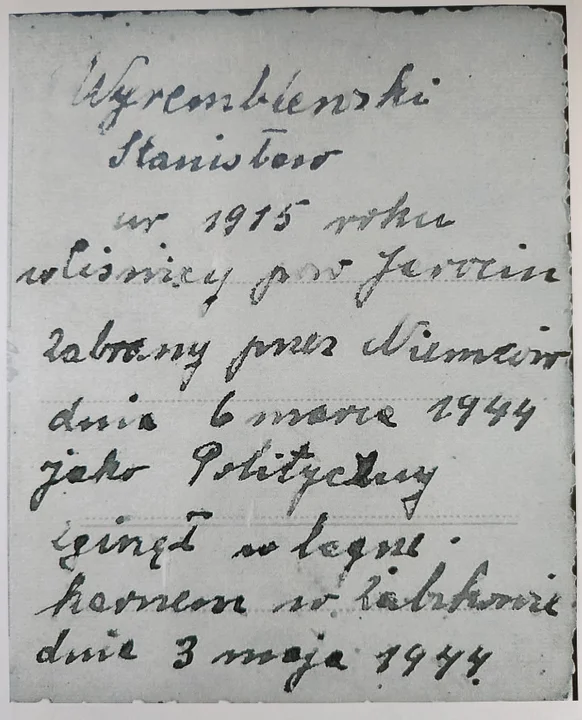 Wyrembienski
Stanisław
ur 1915 roku
w Lisnicy pow Jarocin
Zabrany przez Niemców
dnia 6 marca 1944
jako Polityczny
zginął w łagrze
karnem w Żabikowie
dnia 3 maja 1944